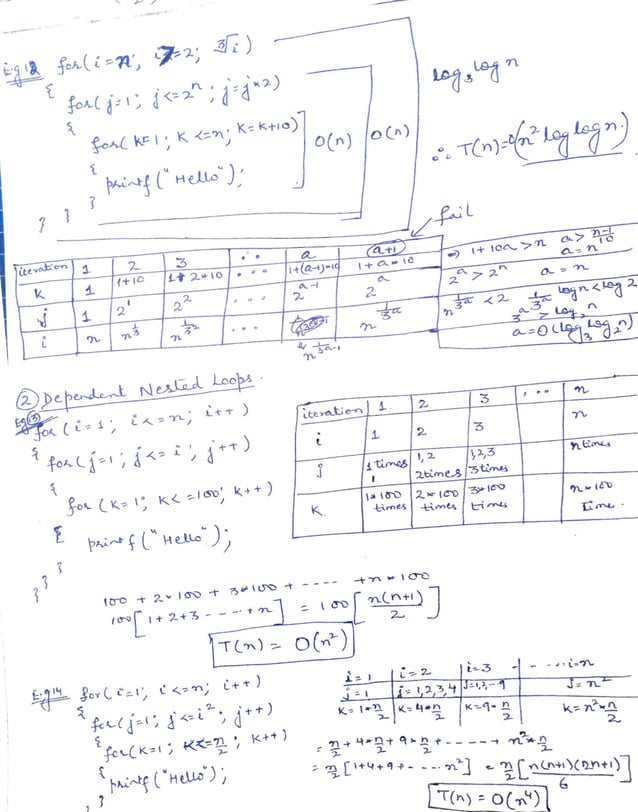 E.g 12 for(i=n; i>=2; ∛i)
{
for(j=1; j<=2ⁿ; j=j*2)
{
for(k=1; k<=n; k=k+10)
{
printf("Hello");
}
}
}
O(n)
O(n)
log₃ log n
∴ T(n)=O(n² log log n).
fail
iteration 1 2 3 ... a a+1
k 1 1+10 1+2*10 ... 1+(a-1)*10 1+a*10
j 1 2¹ 2² ... 2^(a-1) 2^a
i n n^(1/3) n^(1/3²) ... n^(1/3^(a-1)) n^(1/3^a)
⇒ 1+10a>n a > (n-1)/10
a=n
2^a > 2^n a=n
n^(1/3^a) < 2 1/3^a log n < log 2
3^a > log₂ n
a=O(log₃ log₂ n)
② Dependent Nested Loops.
Eg 13
for (i=1; i<=n; i++)
{ for(j=1; j<=i; j++)
{
for (k=1; k<=100; k++)
{ printf("Hello");
}
}
}
iteration 1 2 3 ... n
i 1 2 3 n
j 1 times 1 1,2 2times 1,2,3 3times n times
k 1*100 times 2*100 times 3*100 times n*100 Time.
100 + 2*100 + 3*100 + ---- +n*100
100[1+2+3-----+n] = 100[n(n+1)/2]
T(n) = O(n²)
E.g 14 for(i=1; i<=n; i++)
{
for(j=1; j<=i²; j++)
{
for(k=1; k<=n/2; k++)
{
printf("Hello");
}
}
i=1 i=2 i=3 - ---- i=n
j=1 j=1,2,3,4 j=1,2,-9 j=n²
k=1*n/2 k=4*n/2 k=9*n/2 k=n²*n/2
= n/2+4*n/2+9*n/2+-----+ n²*n/2
= n/2[1+4+9+----n²] = n/2[n(n+1)(2n+1)/6]
T(n) = O(n⁴)